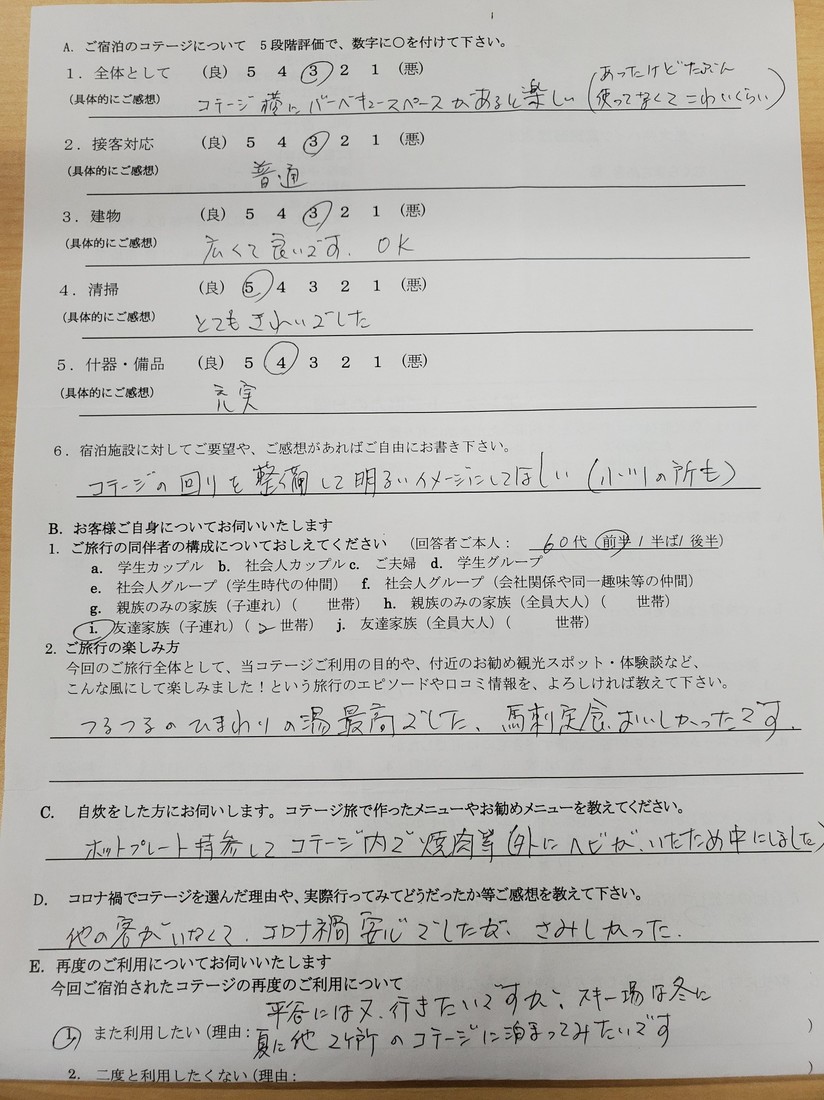 A. ご宿泊のコテージについて 5段階評価で、数字に○を付けて下さい。
1. 全体として (良) 5 4 3 2 1 (悪)
(具体的にご感想) コテージ横にバーベキュースペースがあると楽しい (あったけどたぶん
使ってなくてこわいくらい)
2. 接客対応 (良) 5 4 3 2 1 (悪)
(具体的にご感想) 普通
3. 建物 (良) 5 4 3 2 1 (悪)
(具体的にご感想) 広くて良いです. OK
4. 清掃 (良) 5 4 3 2 1 (悪)
(具体的にご感想) とてもきれいでした
5. 什器・備品 (良) 5 4 3 2 1 (悪)
(具体的にご感想) 充実
6. 宿泊施設に対してご要望や、ご感想があればご自由にお書き下さい。
コテージの回りを整備して明るいイメージにしてほしい (小川の所も)
B. お客様ご自身についてお伺いいたします
1. ご旅行の同伴者の構成についておしえてください (回答者ご本人: 60代 前半/半ば/後半)
a. 学生カップル b. 社会人カップル c. ご夫婦 d. 学生グループ
e. 社会人グループ (学生時代の仲間) f. 社会人グループ (会社関係や同一趣味等の仲間)
g. 親族のみの家族 (子連れ) ( 世帯) h. 親族のみの家族 (全員大人) ( 世帯)
i. 友達家族 (子連れ) ( 2 世帯) j. 友達家族 (全員大人) ( 世帯)
2. ご旅行の楽しみ方
今回のご旅行全体として、当コテージご利用の目的や、付近のお勧め観光スポット・体験談など、
こんな風にして楽しみました!という旅行のエピソードや口コミ情報を、よろしければ教えて下さい。
つるつるのひまわりの湯最高でした、馬刺定食おいしかったです.
C. 自炊をした方にお伺いします。コテージ旅で作ったメニューやお勧めメニューを教えてください。
ホットプレート持参してコテージ内で焼肉等 (外にヘビが、いたため中にしました)
D. コロナ禍でコテージを選んだ理由や、実際行ってみてどうだったか等ご感想を教えて下さい。
他の客がいなくて、コロナ禍安心でしたが、さみしかった.
E. 再度のご利用についてお伺いいたします
今回ご宿泊されたコテージの再度のご利用について
平谷には又、行きたいですが、スキー場は冬に
1 また利用したい (理由: 夏に他2ヶ所のコテージに泊まってみたいです )
2. 二度と利用したくない (理由: )